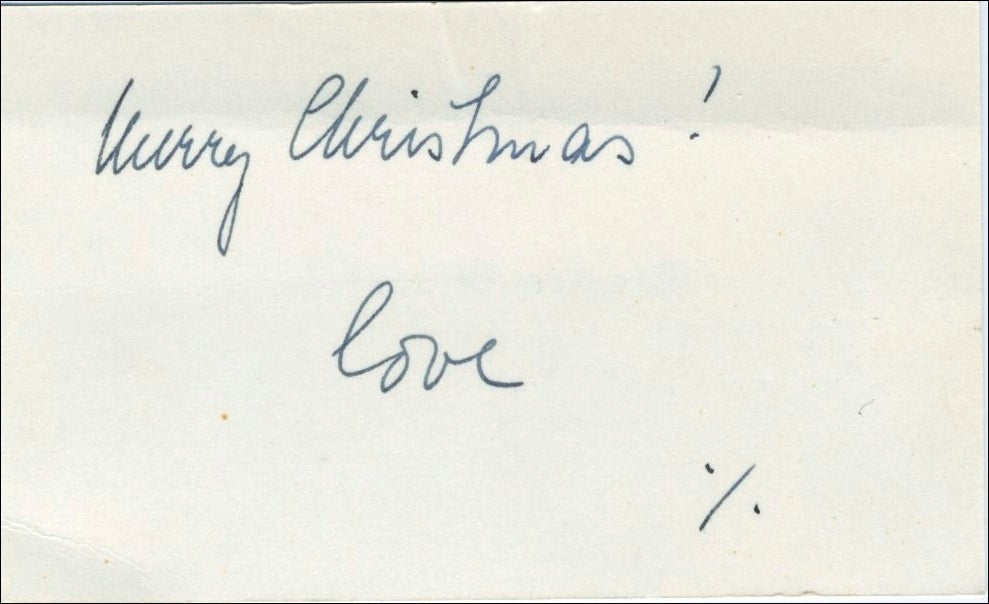 Merry Christmas!
love
./.